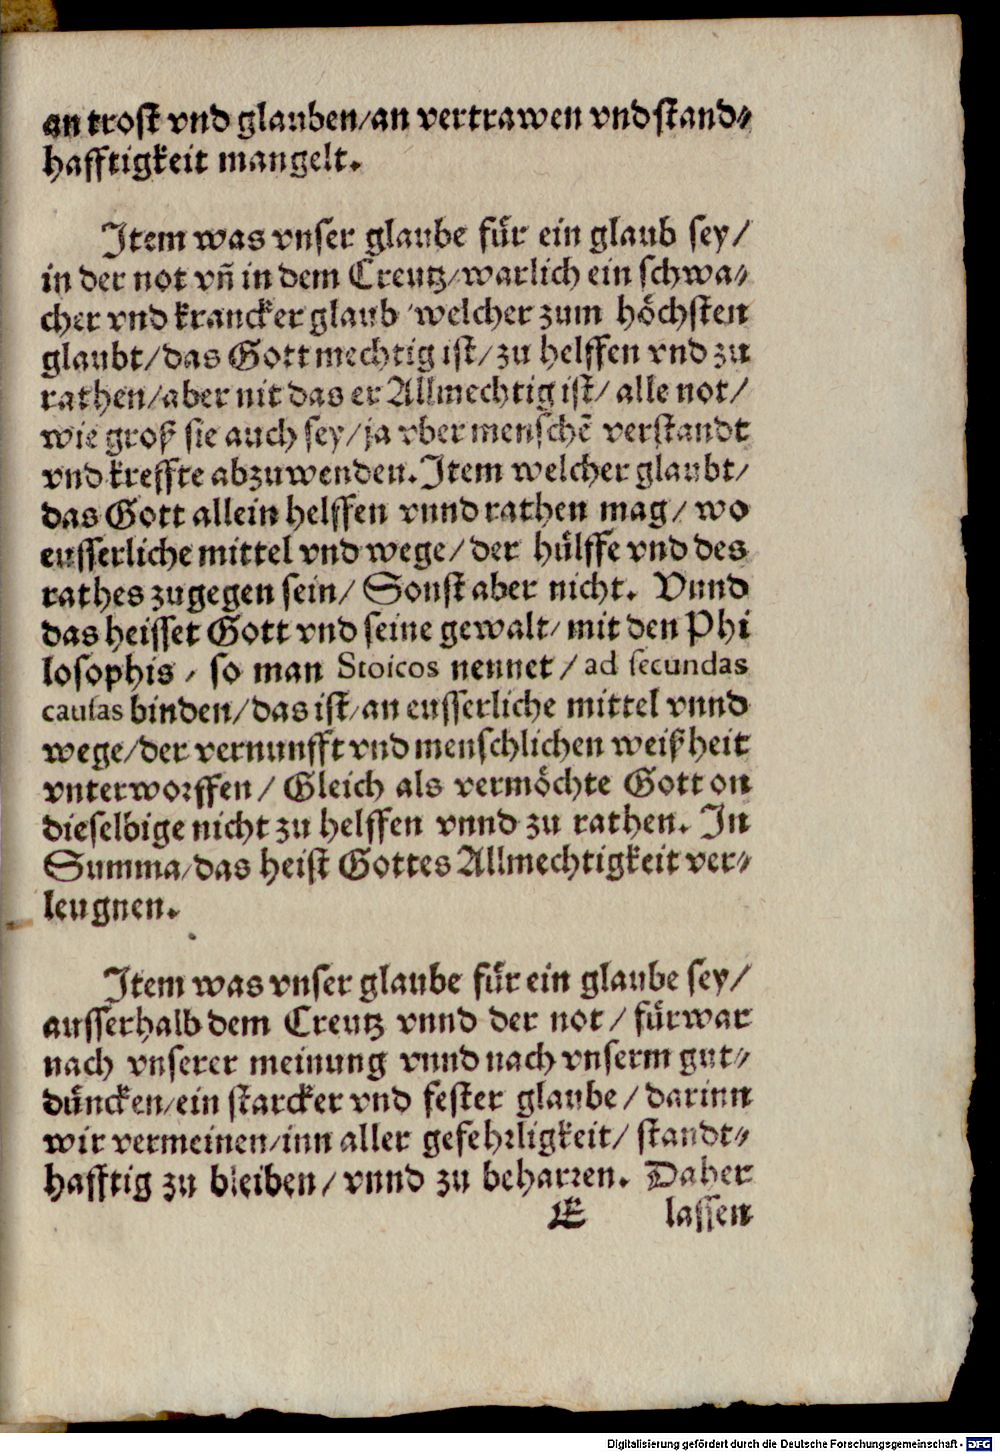 an trost vnd glauben/an vertrawen vnd stand⸗
hafftigkeit mangelt.
Item was vnser glaube für ein glaub sey/
in der not vñ in dem Creutz/warlich ein schwa⸗
cher vnd krancker glaub/welcher zum höchsten
glaubt/das Gott mechtig ist/zu helffen vnd zu
rathen/aber nit das er Allmechtig ist/alle not/
wie groß sie auch sey/ja vber menschē verstandt
vnd kreffte abzuwenden. Item welcher glaubt/
das Gott allein helffen vnnd rathen mag/wo
eusserliche mittel vnd wege/der hülffe vnd des
rathes zugegen sein/Sonst aber nicht. Vnnd
das heisset Gott vnd seine gewalt/mit den Phi
losophis/so man Stoicos nennet/ad secundas
causas binden/das ist/an eusserliche mittel vnnd
wege/der vernunfft vnd menschlichen weißheit
vnterworffen/Gleich als vermöchte Gott on
dieselbige nicht zu helffen vnnd zu rathen. In
Summa/das heist Gottes Allmechtigkeit ver⸗
leugnen.
Item was vnser glaube für ein glaube sey/
ausserhalb dem Creutz vnnd der not/fürwar
nach vnserer meinung vnnd nach vnserm gut⸗
düncken/ein starcker vnd fester glaube/darinn
wir vermeinen/inn aller gefehrligkeit/standt⸗
hafftig zu bleiben/vnnd zu beharren. Daher
E lassen
Digitalisierung gefördert durch die Deutsche Forschungsgemeinschaft - DFG